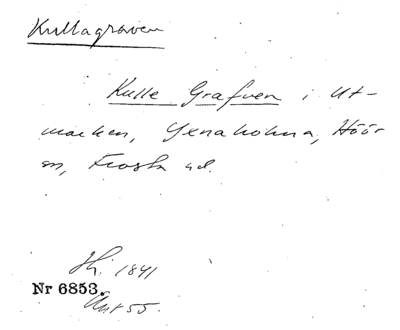 Kullagraven
Kulle Grafven i Ut-
marken, Yxnaholma, Höör
sn, Frosta hd.
Sk. 1841
Nr 6853.
Akt 55.